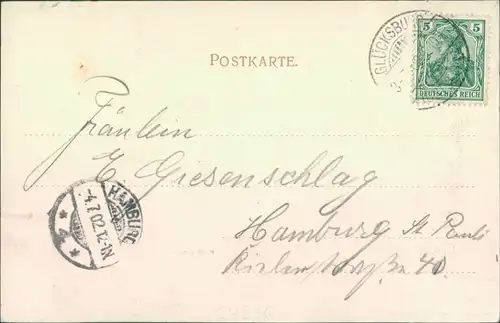 POSTKARTE.
GLÜCKSBURG
5 5
DEUTSCHES REICH
Fräulein
E Giesenschlag
Hamburg St Pauli
Kielerstraße 40
HAMBURG
-4.7.02.12-1N
* 4 *